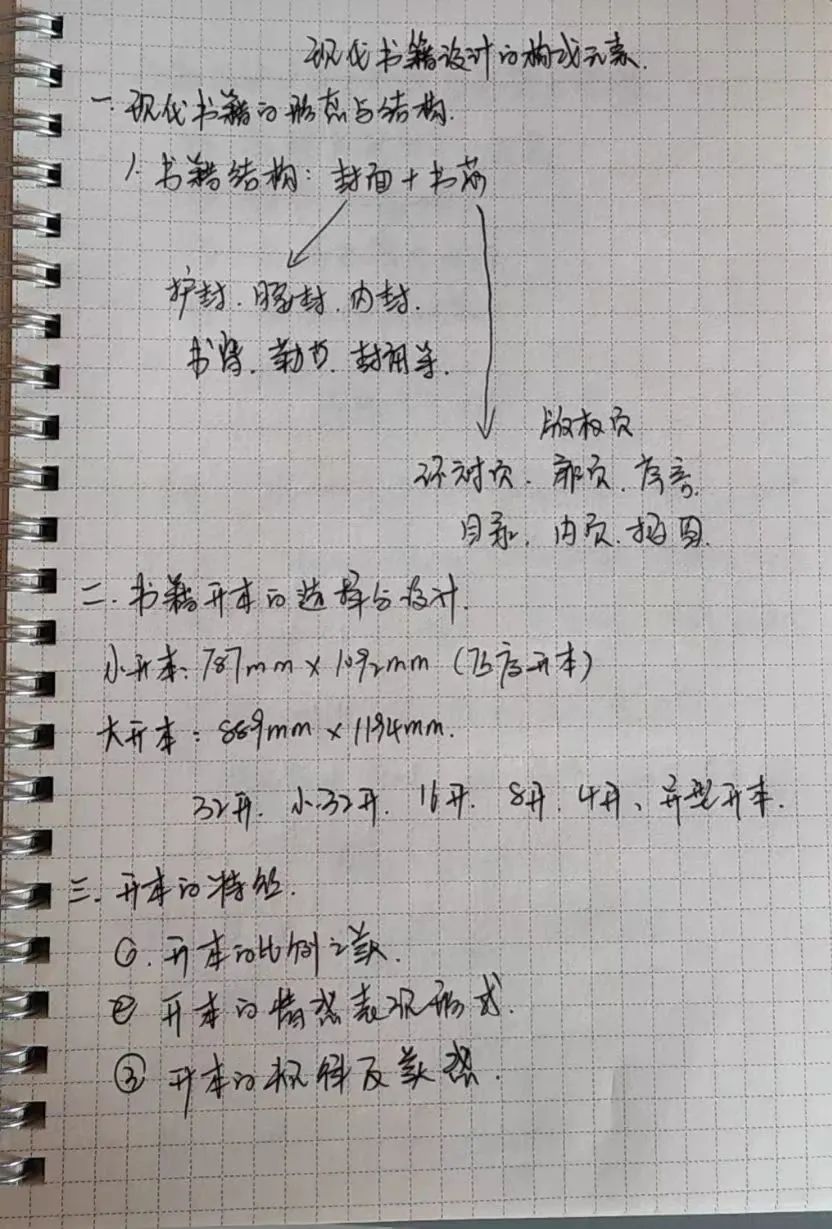 现代书籍设计的构成元素.
一.现代书籍的形态与结构.
1.书籍结构:封面+书芯
护封.腰封.内封.
书脊.勒口.封底等.
版权页
环衬页.扉页.序言.
目录.内页.插图.
二.书籍开本的选择与设计.
小开本:787mm×1092mm(正度开本)
大开本:889mm×1194mm.
32开.小32开.16开.8开.4开、异型开本.
三.开本的特征.
①.开本的比例之美.
②开本的情感表现形式.
③开本的 及美感.